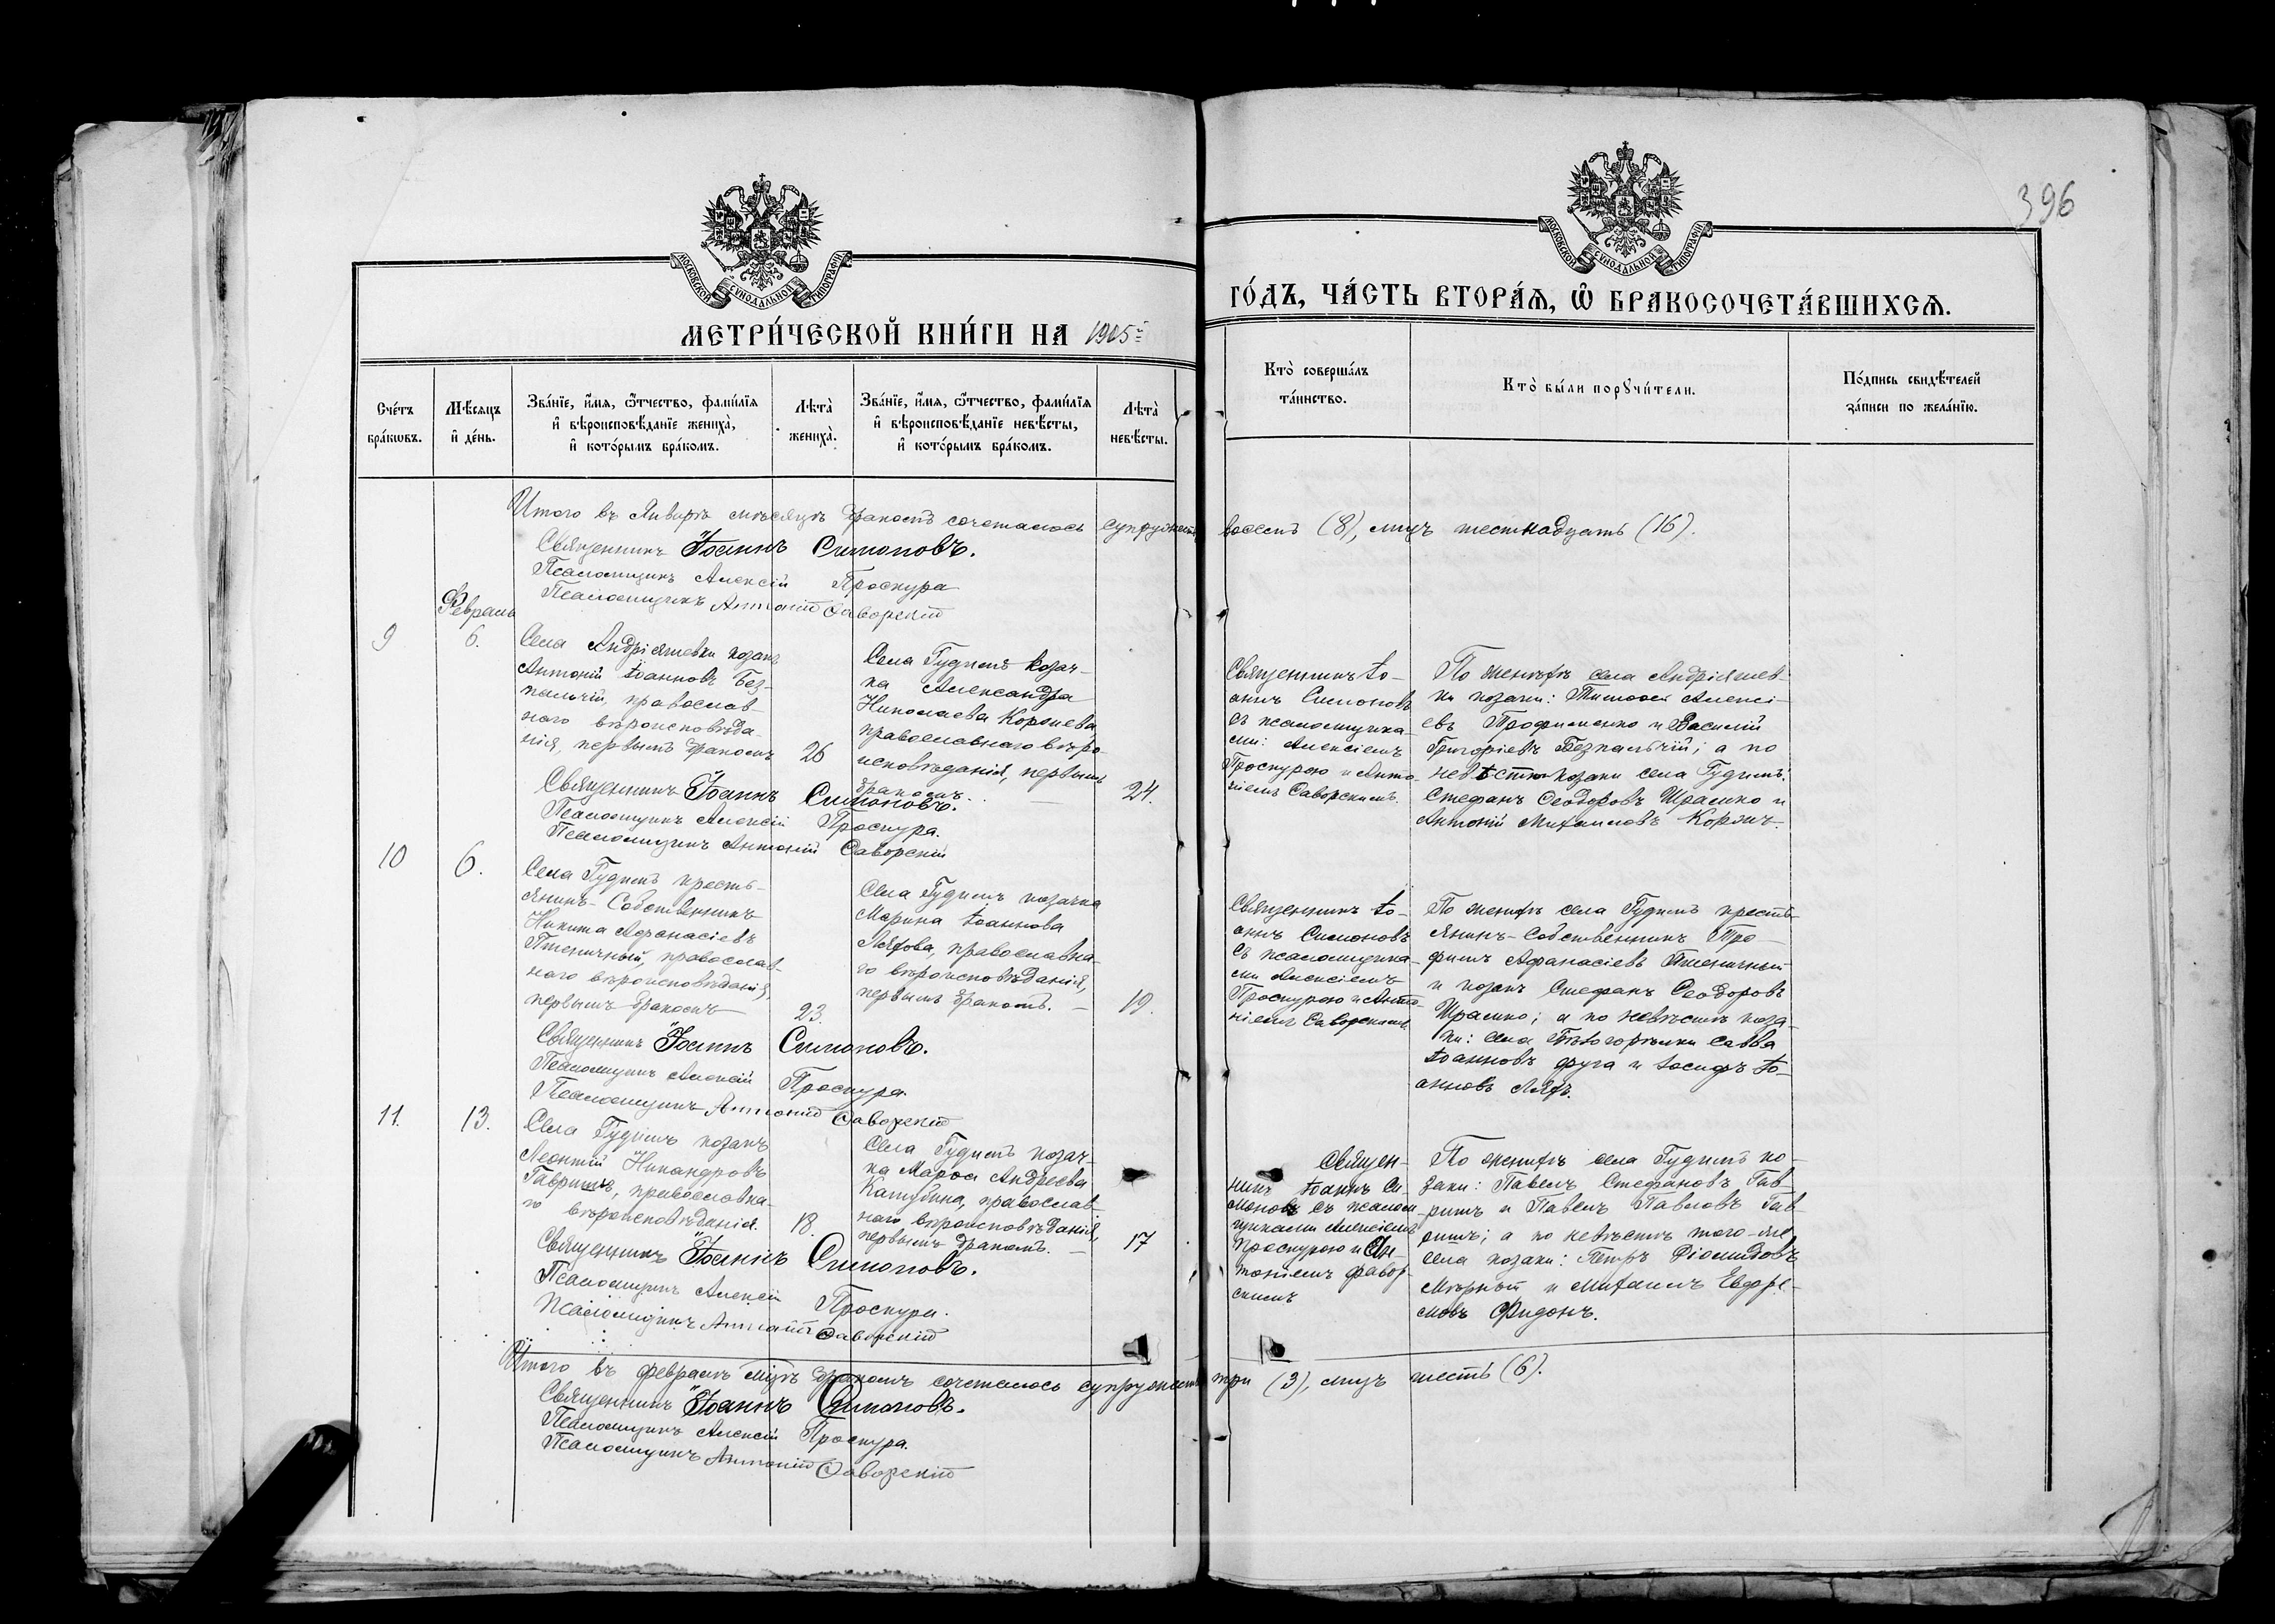 396
МОСКОВСКОЙ СУНОДАЛЬНОЙ ТИПОГРАФІИ
МОСКОВСКОЙ СУНОДАЛЬНОЙ ТИПОГРАФІИ
МЕТРИ́ЧЕСКОЙ КНИ́ГИ НА 1905 г.
ГО́ДЪ, ЧА́СТЬ ВТОРА́Ѧ, Ѽ БРАКОСОЧЕТА́ВШИХСѦ.
Сче́тъ бра́кѡвъ.
Мѣ́сѧцъ и҆ де́нь.
Зва́нїе, и҆́мѧ, ѻ҆́тчество, фами́лїѧ
и҆ вѣроисповѣ́данїе жениха̀,
и҆ кото́рымъ бра́комъ.
Лѣта̀ жениха̀.
Зва́нїе, и҆́мѧ, ѻ҆́тчество, фами́лїѧ
и҆ вѣроисповѣ́данїе невѣ́сты,
и҆ кото́рымъ бра́комъ.
Лѣта̀ невѣ́сты.
Кто̀ соверша́лъ
та́инство.
Кто̀ бы́ли порꙋчи́тели.
По́дпись свидѣ́телей
за́писи по жела́нїю.
Итого въ Январѣ мѣсяцѣ бракомъ сочеталось супружествъ восемь (8), лицъ шестнадцать (16).
Священникъ Іоаннъ Симоновъ.
Псаломщикъ Алексій Проскура
Псаломщикъ Антоній Фаворскій
Февраль
9
6.
Села Андріяшевки козакъ
Антоній Іоанновъ Без-
пальчій, православ-
наго вѣроисповѣда-
нія, первымъ бракомъ
26
Села Гудимъ козач-
ка Александра
Николаева Коронева,
православнаго вѣро-
исповѣданія, первымъ
бракомъ.
24.
Священникъ Іо-
аннъ Симоновъ
съ псаломщика-
ми: Алексіемъ
Проскурою и Анто-
ніемъ Фаворскимъ.
По женихѣ села Андріяшев-
ки козаки: Тимофей Алексі-
евъ Трофименко и Василій
Григоріевъ Безпальчій; а по
невѣстѣ козаки села Гудимъ:
Стефанъ Феодоровъ Шрамко и
Антоній Михаиловъ Коржъ.
Священникъ Іоаннъ Симоновъ.
Псаломщикъ Алексій Проскура.
Псаломщикъ Антоній Фаворскій
10
6.
Села Гудимъ кресть-
янинъ-Собственникъ
Никита Афанасіевъ
Пшеничный, православ-
наго вѣроисповѣданія,
первымъ бракомъ
23.
Села Гудимъ козачка
Марина Іоаннова
Ляхова, православна-
го вѣроисповѣданія,
первымъ бракомъ.
19.
Священникъ Іо-
аннъ Симоновъ
съ псаломщика-
ми Алексіемъ
Проскурою и Анто-
ніемъ Фаворскимъ.
По женихѣ села Гудимъ кресть-
янинъ-Собственникъ Тро-
фимъ Афанасіевъ Пшеничный
и козакъ Стефанъ Феодоровъ
Шрамко; а по невѣстѣ коза-
ки: села Бѣлогорѣлки Савва
Іоанновъ Фуга и Іосифъ Іо-
анновъ Ляхъ.
Священникъ Іоаннъ Симоновъ.
Псаломщикъ Алексій Проскура.
Псаломщикъ Антоній Фаворскій
11.
13.
Села Гудимъ козакъ
Леонтій Никандровъ
Гавришъ, православна-
го вѣроисповѣданія.
18.
Села Гудимъ козач-
ка Марфа Андреева
православ-
наго вѣроисповѣданія,
первымъ бракомъ.
17
Священ-
никъ Іоаннъ Си-
моновъ съ псалом-
щиками Алексіемъ
Проскурою и Ан-
тоніемъ Фавор-
скимъ
По женихѣ села Гудимъ ко-
заки: Павелъ Стефановъ Гав-
ришъ и Павелъ Павловъ Гав-
ришъ; а по невѣстѣ того-же
села козаки: Петръ Діомидовъ
Мѣрный и Михаилъ Евфре-
мовъ Фидонъ.
Священникъ Іоаннъ Симоновъ.
Псаломщикъ Алексій Проскура.
Псаломщикъ Антоній Фаворскій
Итого въ февралѣ мцѣ бракомъ сочеталось супружествъ три (3), лицъ шесть (6).
Священникъ Іоаннъ Симоновъ.
Псаломщикъ Алексій Проскура.
Псаломщикъ Антоній Фаворскій